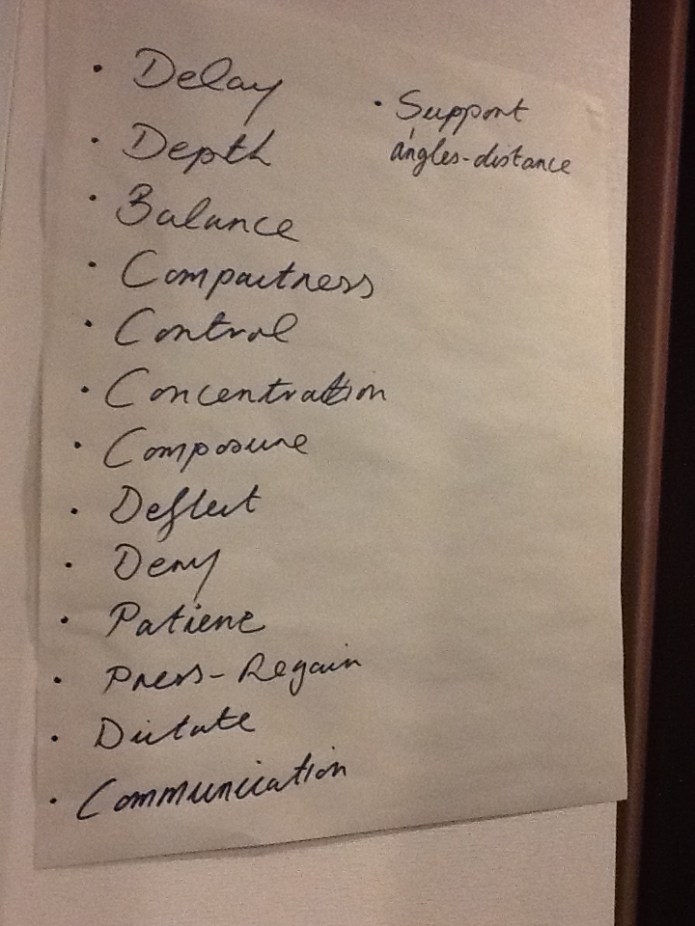 • Delay
• Depth
• Balance
• Compactness
• Control
• Concentration
• Composure
• Deflect
• Deny
• Patience
• Press-Regain
• Dictate
• Communication
• Support
angles-distance